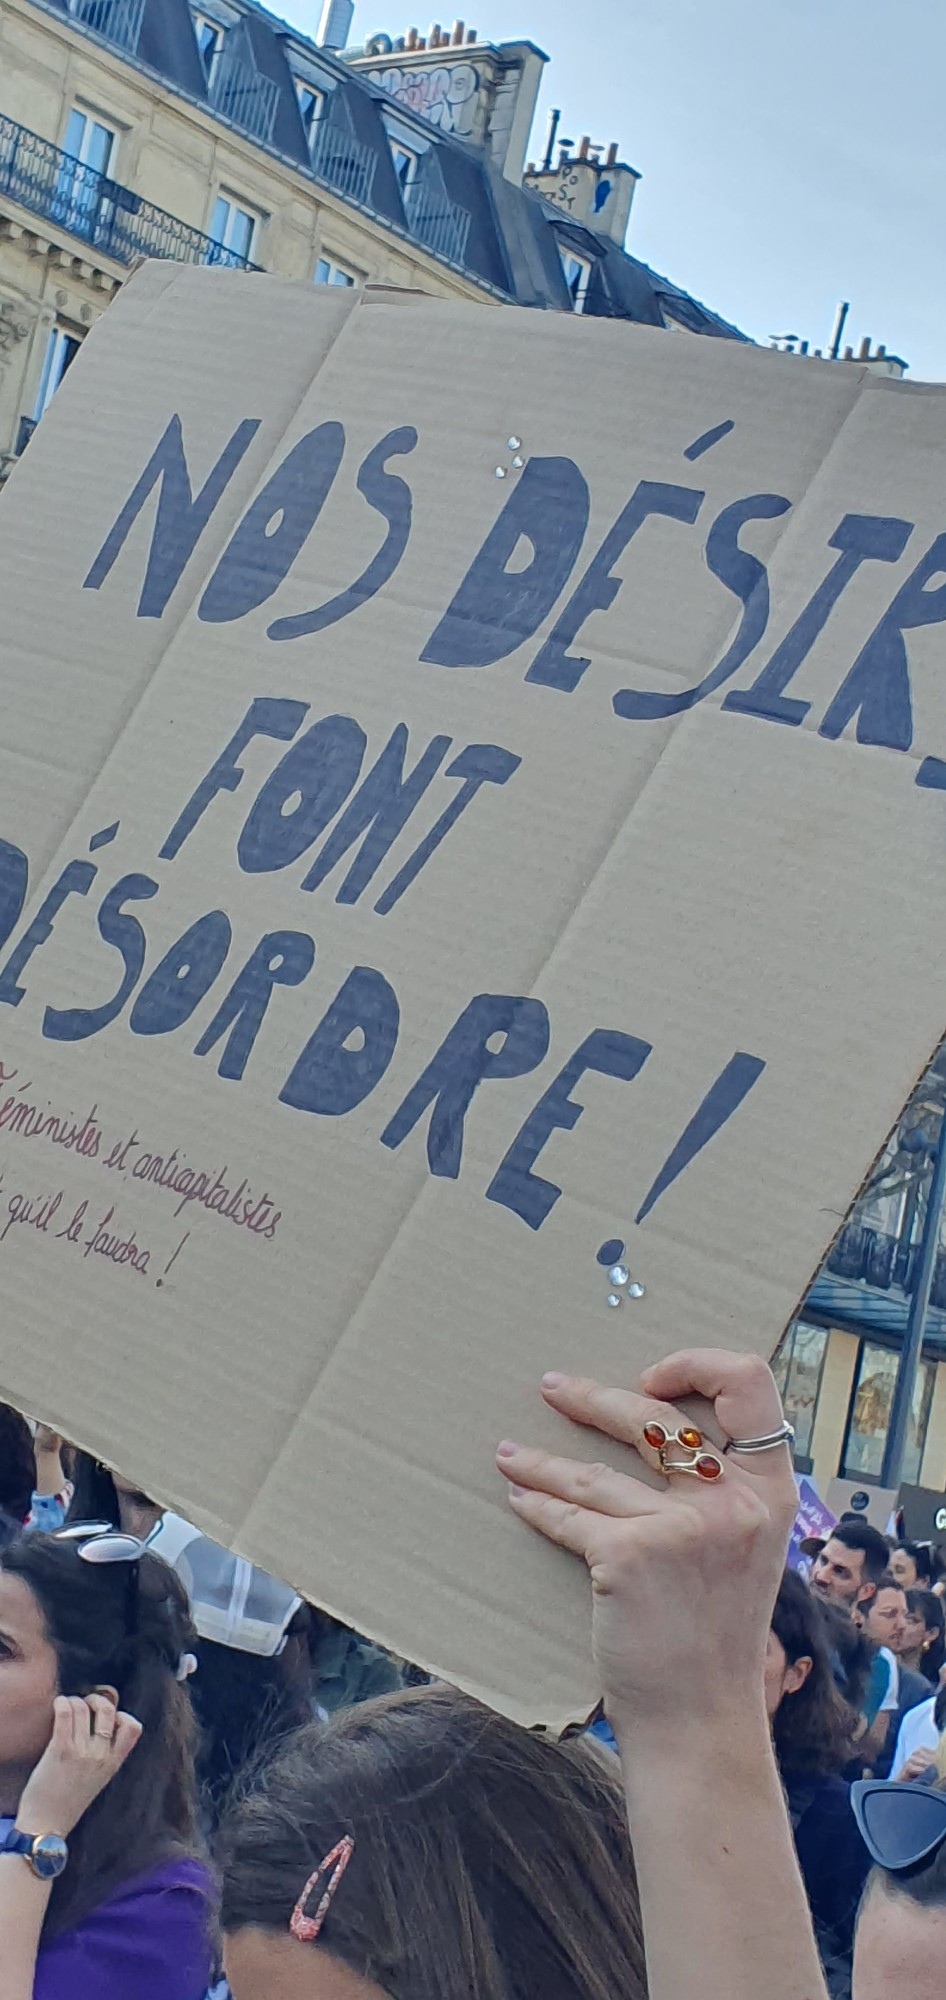 NOS DÉSIR
FONT
DÉSORDRE !
Féministes et anticapitalistes
qu'il le faudra !